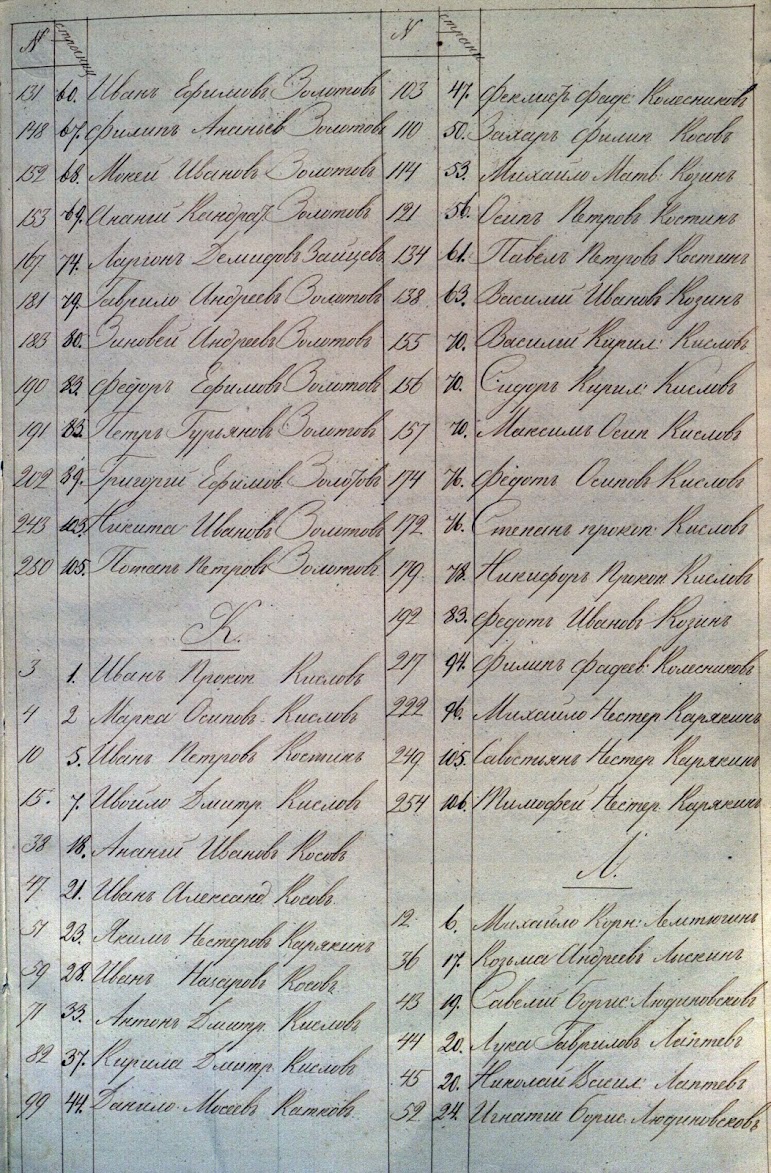 № страниц
131 60. Иванъ Ефимовъ Золотовъ
148 67. Филипъ Ананьев Золотовъ
152 68. Мокей Ивановъ Золотовъ
153 69. Ананий Кандрат Золотовъ
167 74. Ларион Демидовъ Зайцевъ
181 79. Гаврило Андреевъ Золотовъ
183 80. Зиновей Андреевъ Золотовъ
190 83. Федоръ Ефимовъ Золотовъ
191 83. Петръ Гурьяновъ Золотовъ
202 89. Григорий Ефимов Золотовъ
243 103. Никита Ивановъ Золотовъ
250 105. Потапъ Петровъ Золотовъ
К.
3 1. Иванъ Прокоп Кисловъ
4 2 Марка Осипов. Кисловъ
10 5. Иванъ Петровъ Костинъ
15. 7. Дмитр. Кисловъ
38 18. Ананий Ивановъ Косовъ
47 21. Иванъ Александ Косовъ
51 23. Якимъ Нестеровъ Карякинъ
59 28. Иванъ Назаровъ Косовъ
71 33. Антонъ Дмитр. Кисловъ
82 37. Кирила Дмитр. Кисловъ
99 44. Данило Мосеев Катковъ
№ страни
103 47. Феклистъ Фаде: Колесниковъ
110 50. Захаръ Филип Косовъ
114 53. Михайло Матв: Козинъ
121 56. Осипъ Петровъ Костинъ
134 61. Павелъ Петровъ Костинъ
138 63. Василий Ивановъ Козинъ
155 70. Василий Кирил: Кисловъ
156 70. Сидоръ Кирил: Кисловъ
157 70. Максимъ Осип Кисловъ
174 76. Федотъ Осиповъ Кисловъ
172 76. Степанъ прокоп: Кисловъ
179 78. Никифоръ Прокоп Кисловъ
192 83. Федотъ Ивановъ Козинъ
217 94. Филипъ Фадеев: Колесниковъ
222 96. Михайло Нестер Карякинъ
249 105. Савостьянъ Нестер Карякинъ
254 106. Тимофей Нестер: Карякинъ
Л.
12 6. Михайло Корн: Лемтюгинъ
36 17. Козьма Андреевъ Лыскинъ
43 19. Савелий Борис: Людиновсковъ
44 20. Лука Гаврилов Лаптевъ
45 20. Николай Васил: Лаптевъ
52 24. Игнатий Борис Людиновсковъ